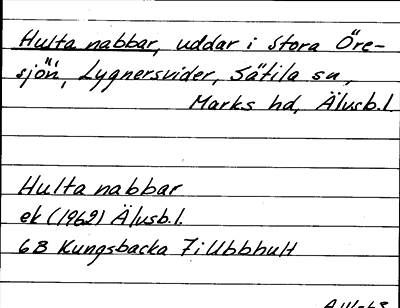 Hulta nabbar, uddar i Stora Öre-
sjön, Lygnersvider, Sätila sn,
Marks hd, Älvsb.l
Hulta nabbar
ek (1962) Älvsb.l.
6B Kungsbacka 7i